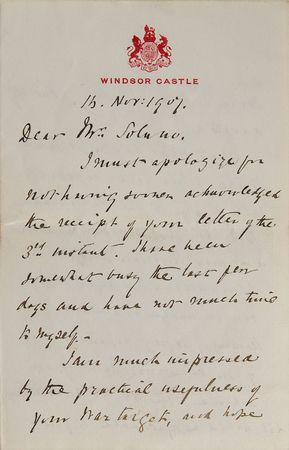 WINDSOR CASTLE
16. Nov: 1907.
Dear Mr. Solano.
I must apologize for
not having sooner acknowledged
the receipt of your letter of the
3rd instant. I have been
somewhat busy the last few
days and have not much time
to myself.-
I am much impressed
by the practical usefulness of
your War targets, and hope